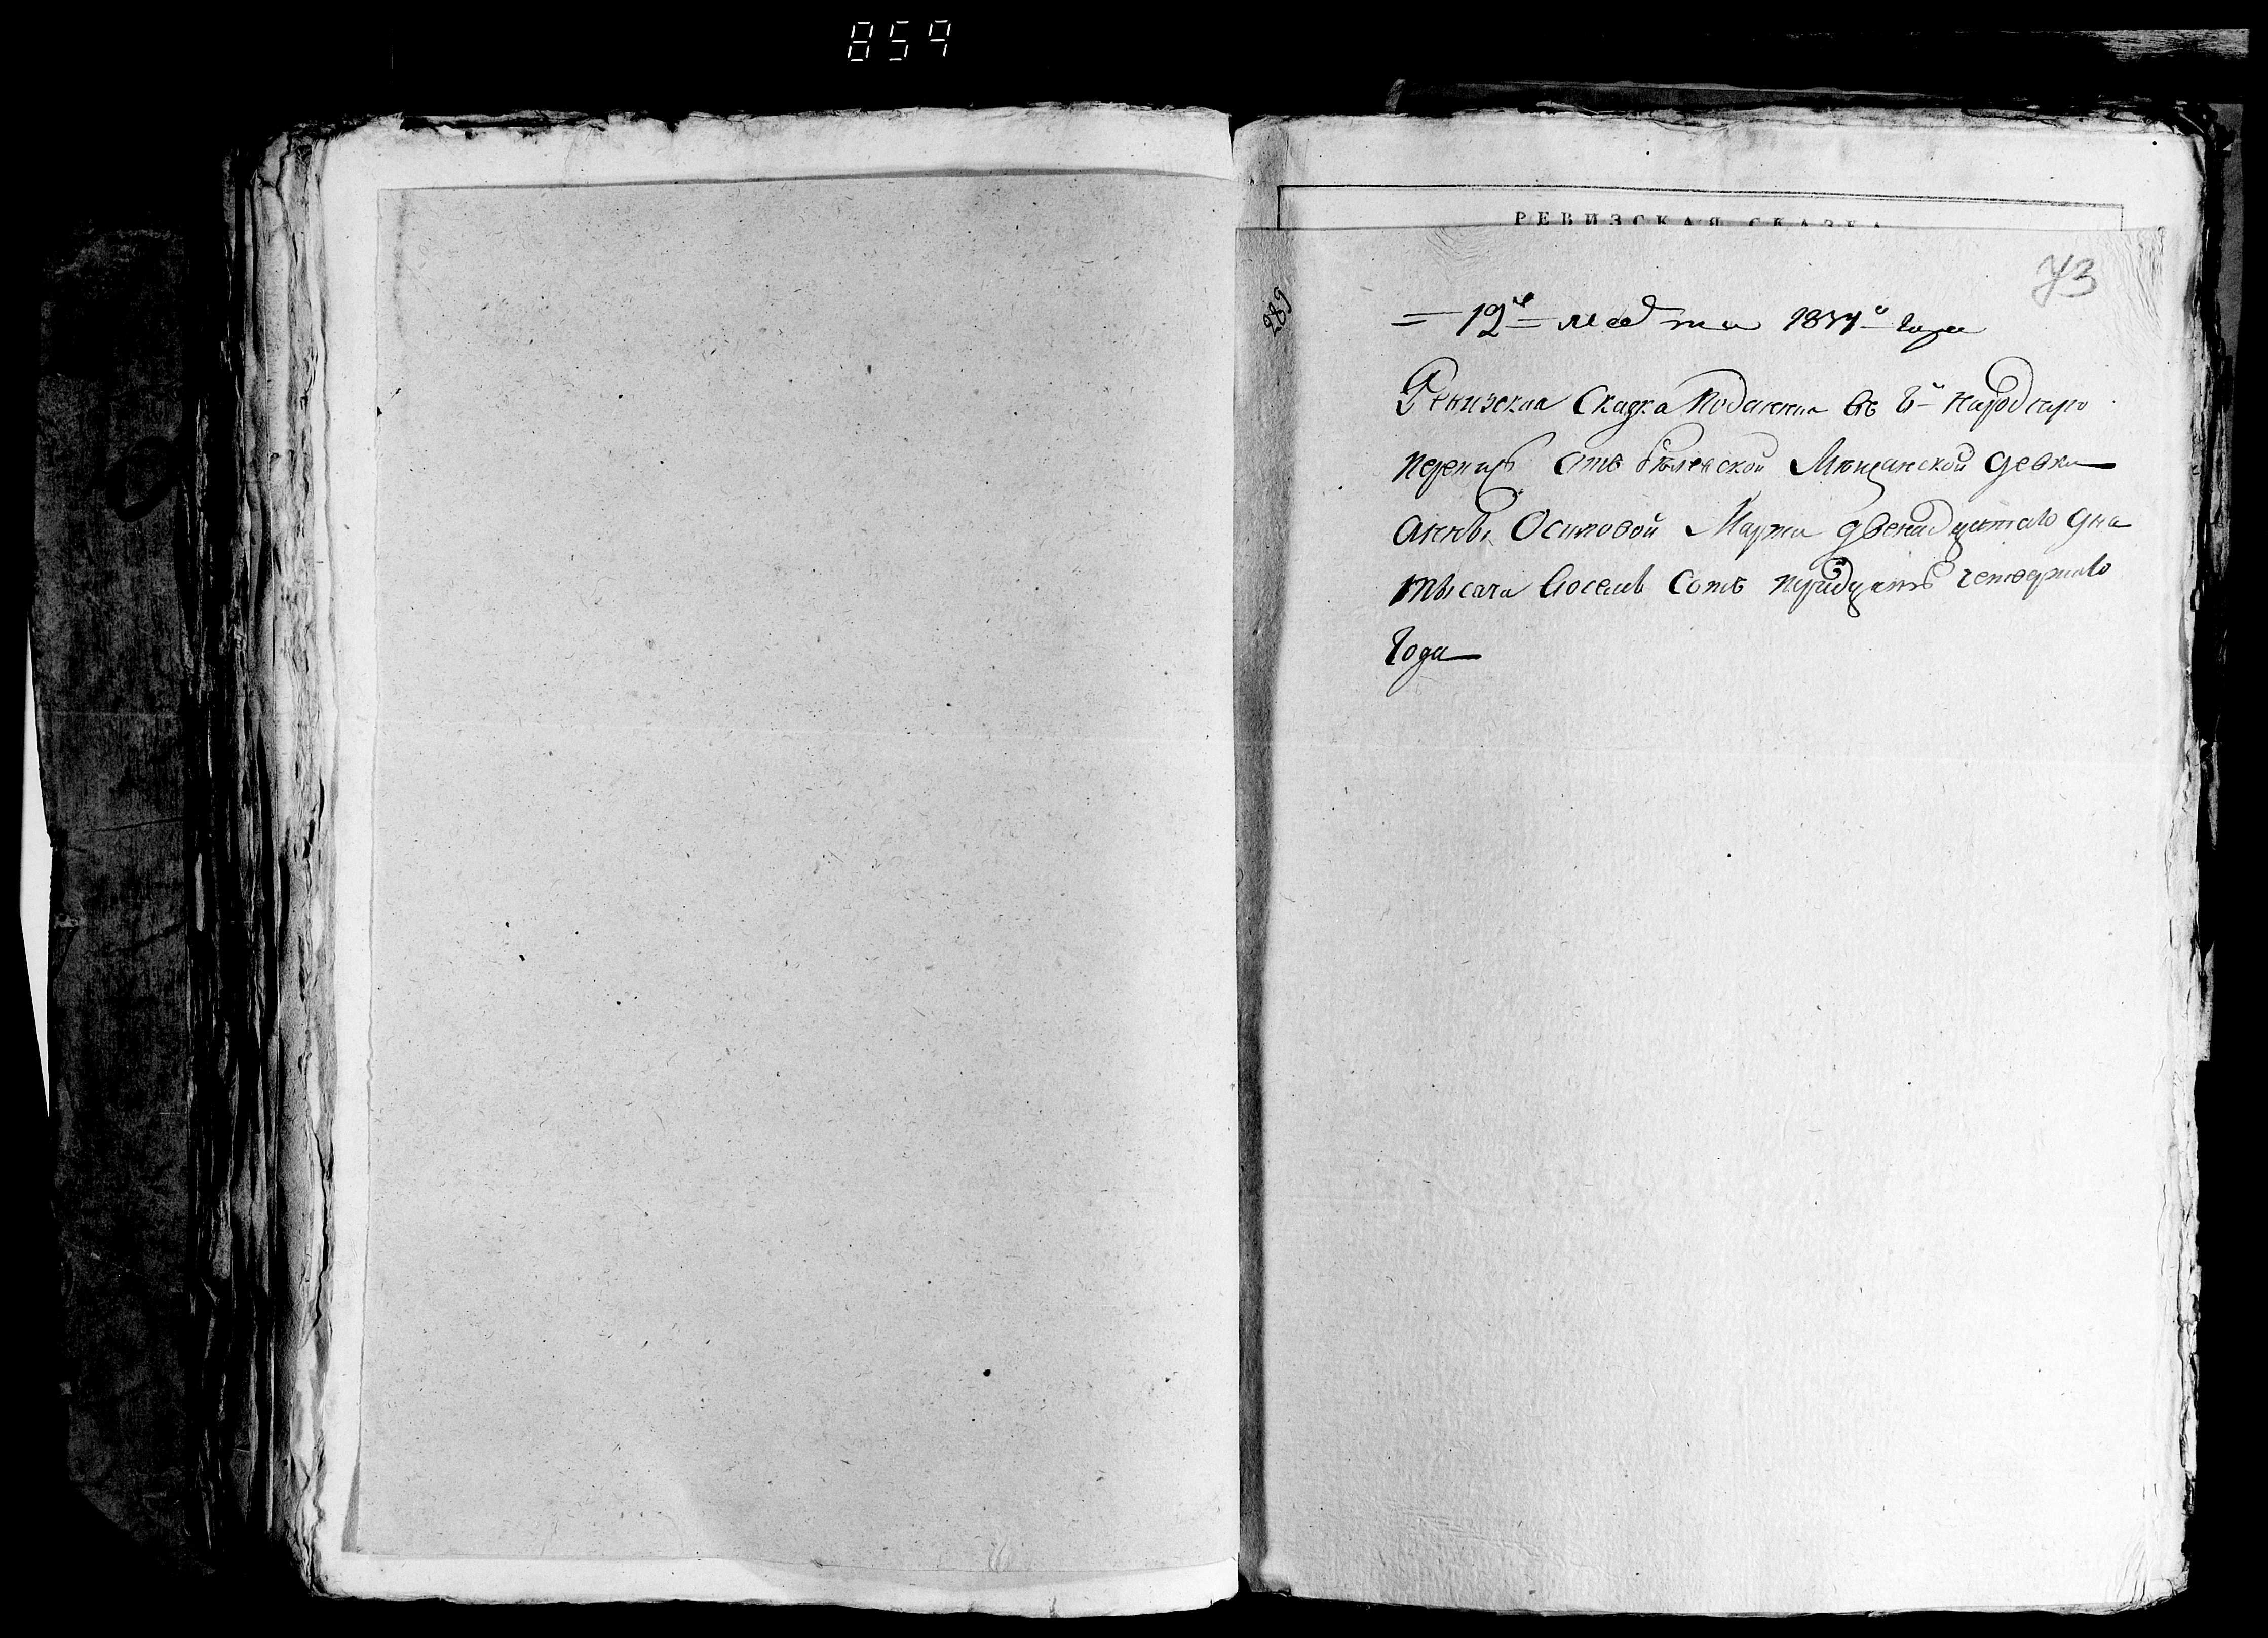 859
РЕВИЗСКАЯ СКАЗКА
73
289
= 12го = Марта 1834го года
Ревизская Сказка Поданная въ 8ю народную
перепись Отъ бѣлевской Мѣщанской девки
Анны Осиповой Марта двенадцатаго дня
тысяча восемь сотъ тридцать четвертаго
года